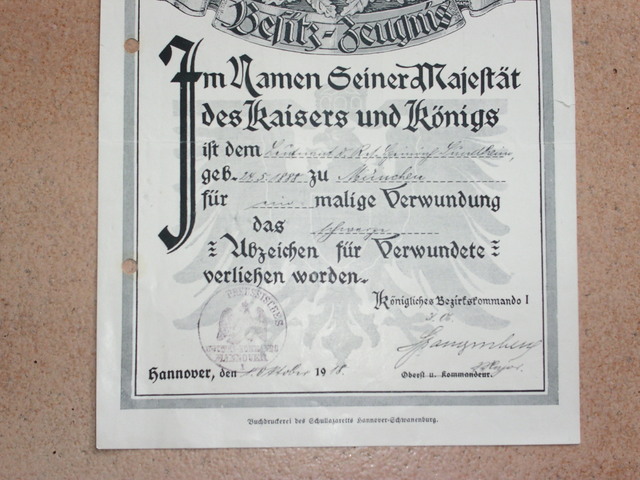 Besitz-Zeugnis
Im Namen Seiner Majestät
des Kaisers und Königs
ist dem Leutnant d. Res. Heinrich
geb. 24.5.1888 zu München
für ein malige Verwundung
das schwarze
Abzeichen für Verwundete
verliehen worden.
Königliches Bezirkskommando I
PREUSSISCHES
HANNOVER
Hannover, den Oktober 1918.
Major
Oberst u. Kommandeur.
Buchdruckerei des Schullazaretts Hannover-Schwanenburg.